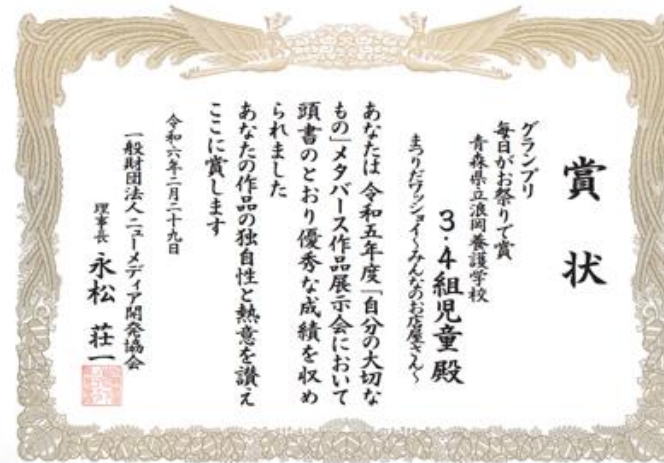 賞状
グランプリ
毎日がお祭りで賞
青森県立浪岡養護学校
3・4組児童殿
まつりだワッショイ～みんなのお店屋さん～
あなたは 令和五年度「自分の大切な
もの」メタバース作品展示会において
頭書のとおり優秀な成績を収め
られました
あなたの作品の独自性と熱意を讃え
ここに賞します
令和六年二月二十九日
一般財団法人ニューメディア開発協会
理事長 永松 荘一